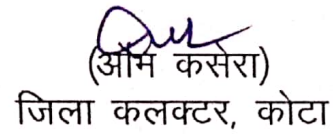 (ओम कसेरा)
जिला कलक्टर, कोटा